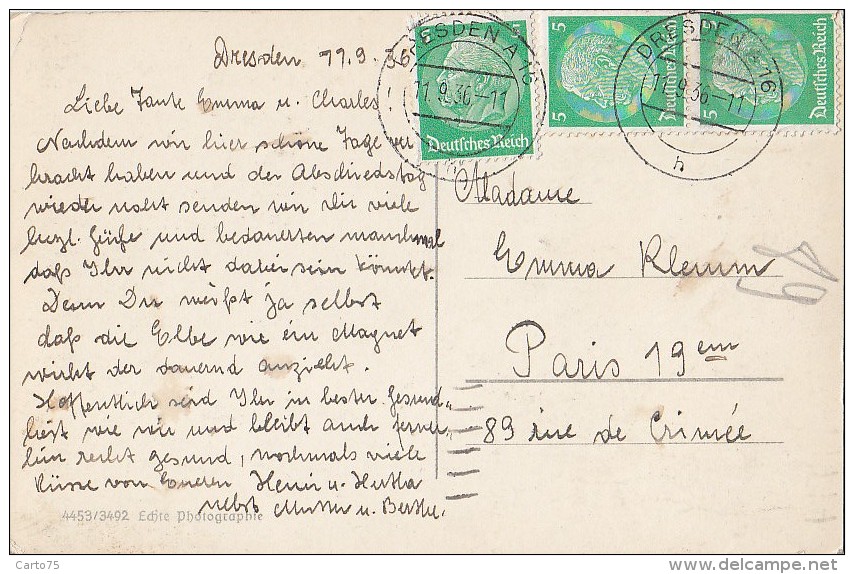 Dresden 11.9.36
Liebe Tante Emma u. Charles!
Nachdem wir hier schöne Tage ver
bracht haben und der Abschiedstag
wieder naht senden wir Dir viele
herzl. Grüße und bedauerten manchmal
daß Ihr nicht dabei sein könntet.
Denn Du weißt ja selbst
daß die Elbe wie ein Magnet
wirkt der dauernd anzieht.
Hoffentlich seid Ihr in bester Gesund„
heit wie wir und bleibt auch ferner„
hin recht gesund, nochmals viele
Küsse von Eueren Henri u. Hertha
nebst Mutter u. Berthe.
4453/3492 Echte Photographie
DRESDEN A 16
11.9.36-11
h
5 5
Deutsches Reich
5 5
Deutsches Reich
5
Deutsches Reich
DRESDEN A 16
11.9.36-11
h
Madame
Emma Klemm
Paris 19em
89 rue de Crimée
19
Carto75
delcampe.net